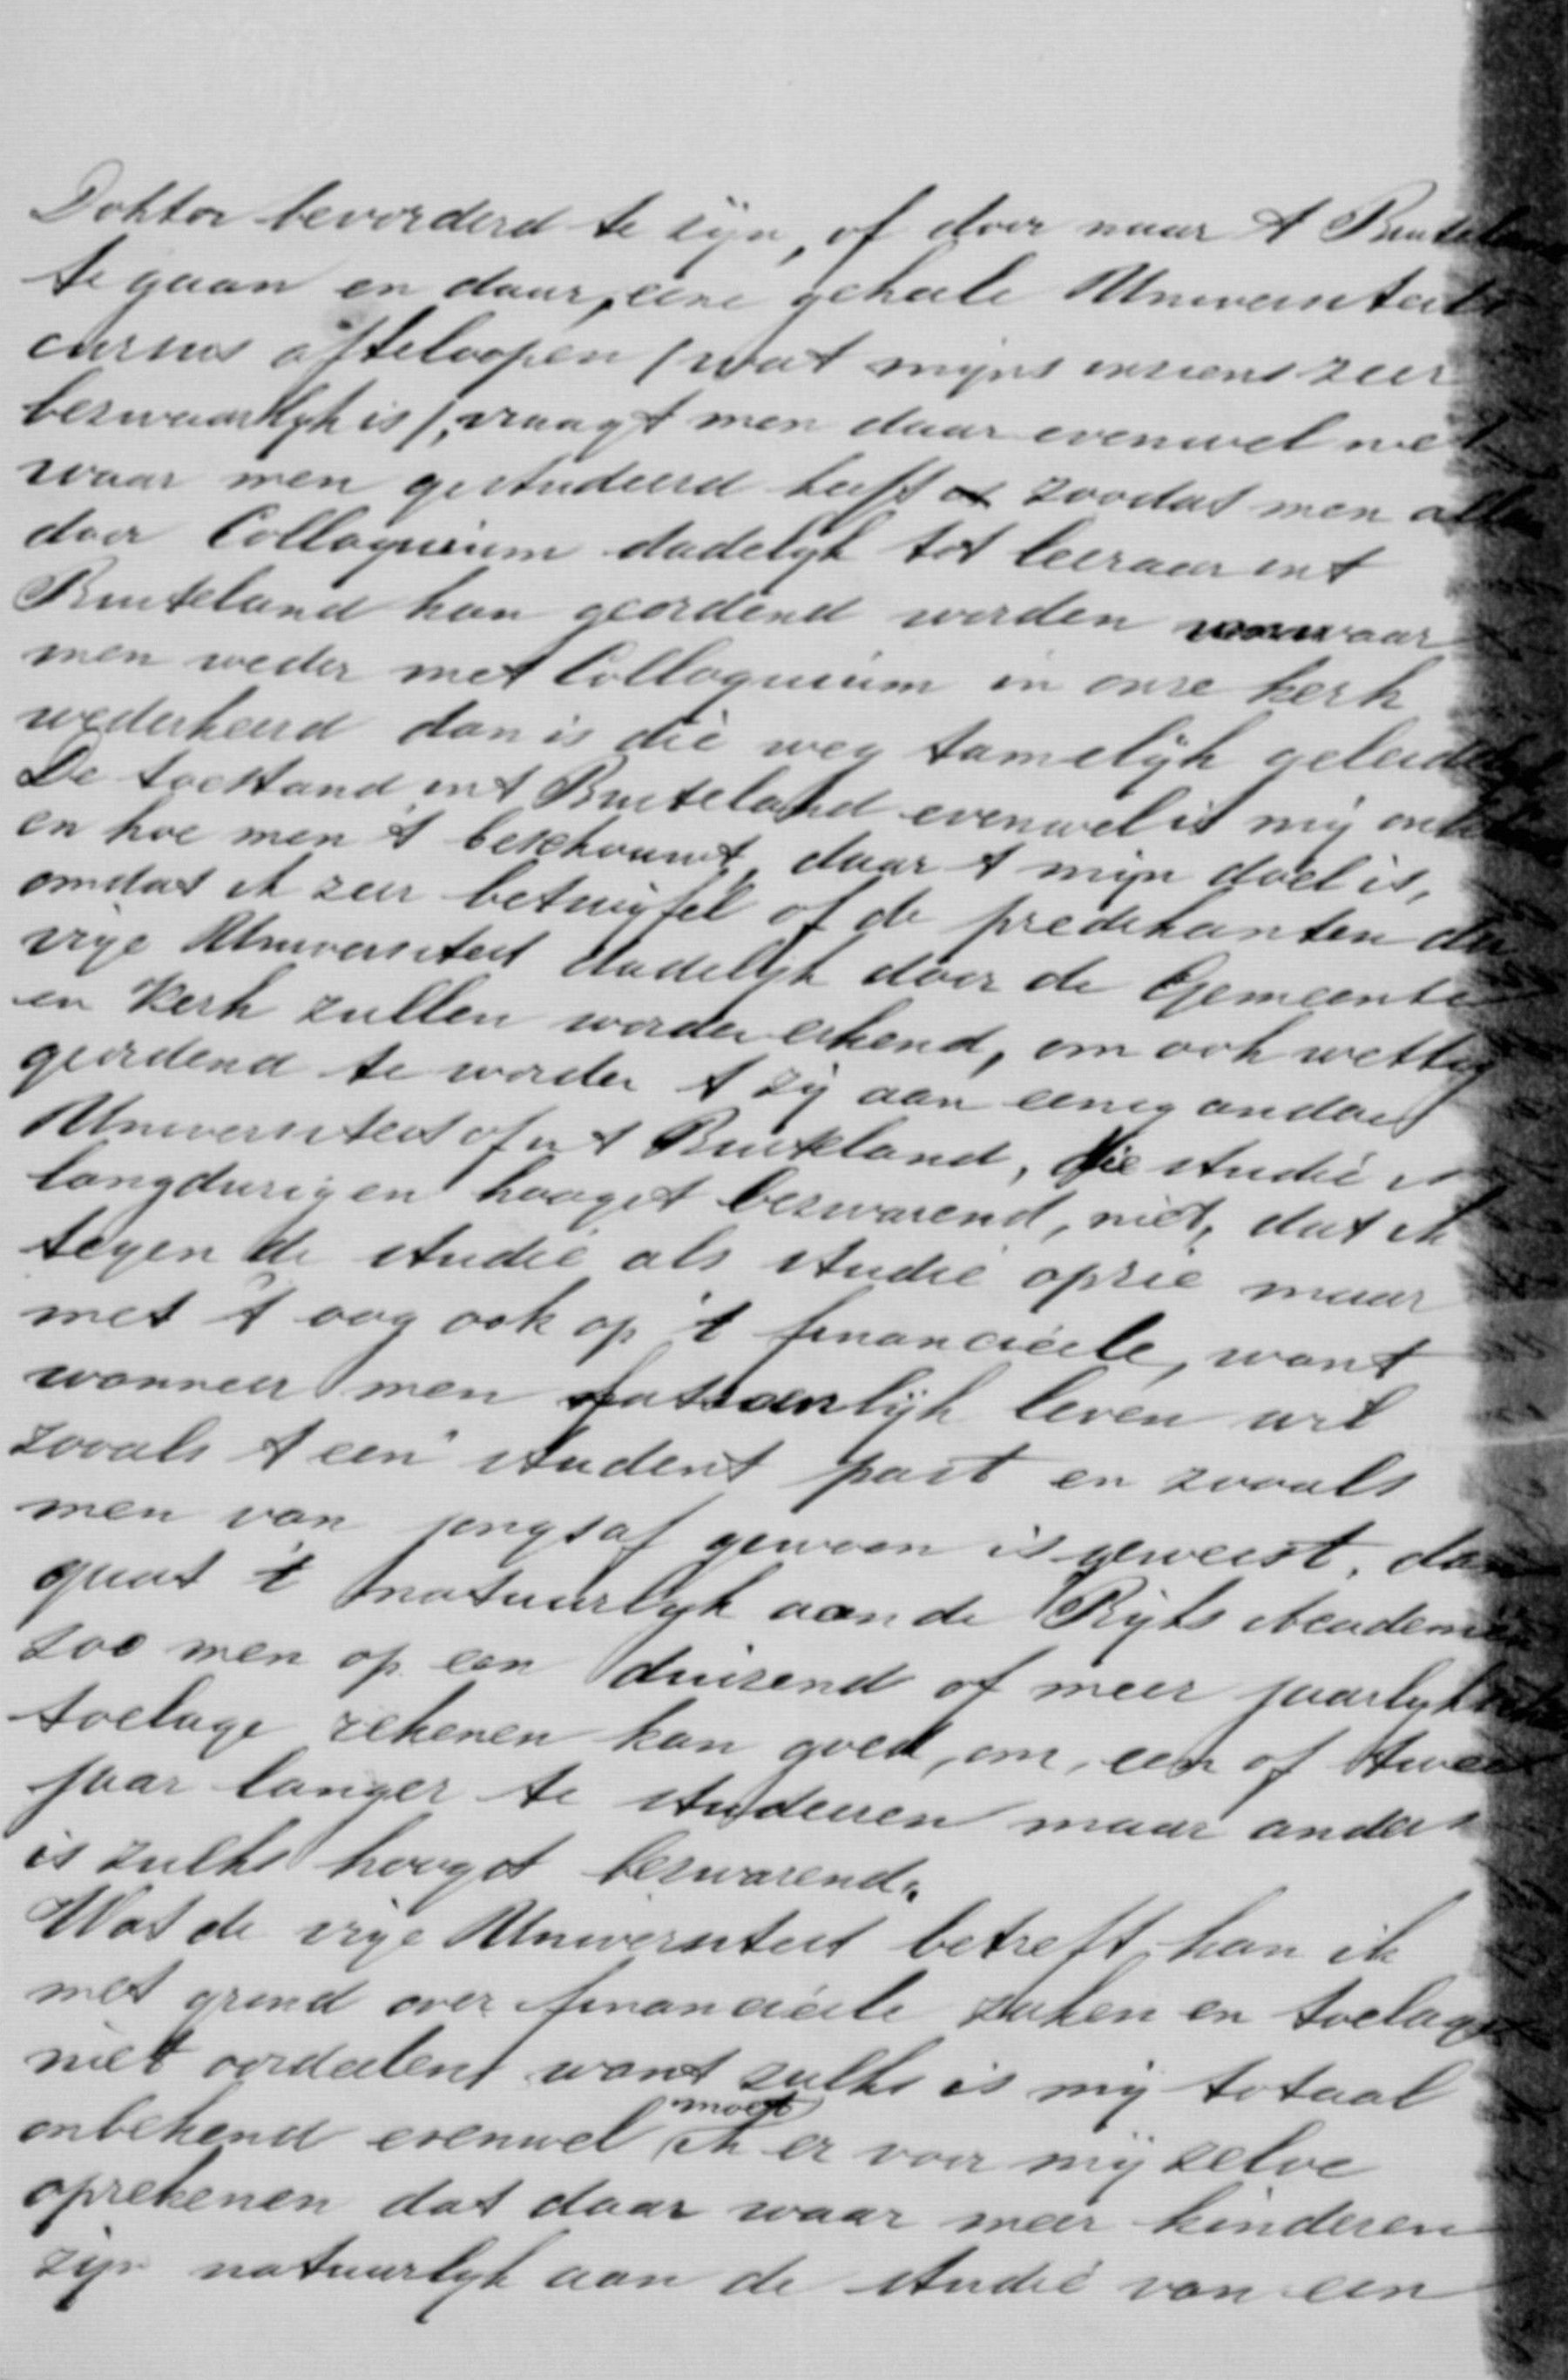 Doktor bevorderd te zijn, of door naar 't Buiteland
te gaan en daar, eene geheele Universiteits
cursus afteloopen (wat mijns insiens zeer
bezwaarlijk is), vraagt men daar evenwel niet
waar men gestudeerd heeft zoodat men alleen
door Colloquium dadelijk tot leeraar in 't
Buiteland kan geordend worden vanwaar
men weder met Colloquium in onze kerk
wederkeerd dan is die weg tamelijk
De toestand in 't Buiteland evenwel is mij
en hoe men 't beschouwt, daar 't mijn doel is,
omdat ik zeer betwijfel of de predikanten der
vrije Universiteit dadelijk door de Gemeente
en Kerk zullen worden erkend, om ook wettig
geordend te worden 't zij aan eenig andere
Universiteit of in 't Buiteland, die studie is
langdurig en hoogst bezwarend, niet, dat ik
tegen de studie als studie opzie maar
met 't oog ook op 't financieele, want
wanneer men fatsoenlijk leven wil
zooals 't een student past en zooals
men van jongsaf gewoon is geweest, dan
gaat 't natuurlijk aan de Rijks Academie
zoo men op een duizend of meer jaarlijksche
toelage rekenen kan goed, om, een of twee
jaar langer te studeeren maar anders
is zulks hoogst bezwarend.
Wat de vrije Universiteit betreft, kan ik
met grond over financieele zaken en toelage
niet oordeelen want zulks is mij totaal
onbekend evenwel moet ik er voor mij zelve
oprekenen dat daar waar meer kinderen
zijn natuurlijk aan de studie van een